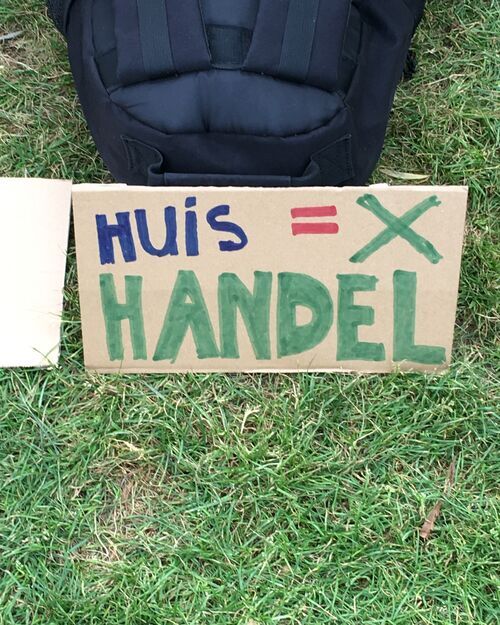 HUiS = X
HANDEL